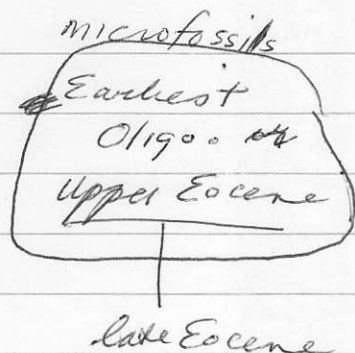 microfossils
Earliest
Oligo. or
Upper Eocene
late Eocene